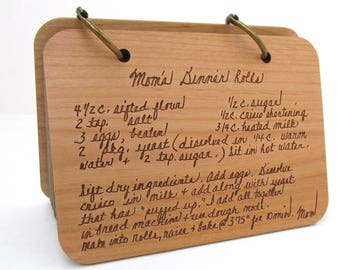 Mom's Dinner Rolls
4 1/2 c. sifted flour 1/2 c. sugar
2 tsp. salt 1/2 c. crisco shortening
3 eggs, beaten 3/4 c. heated milk
2 pkg. yeast (dissolved in 1/4 c. warm
water + 2 tsp. sugar.) Sit in hot water.
Sift dry ingredients. Add eggs. Dissolve
crisco in milk, + add along with yeast
that has "rizzed up." Add all together
in bread machine + run dough
make into rolls, raise + bake @ 375° for 20 min. Mom